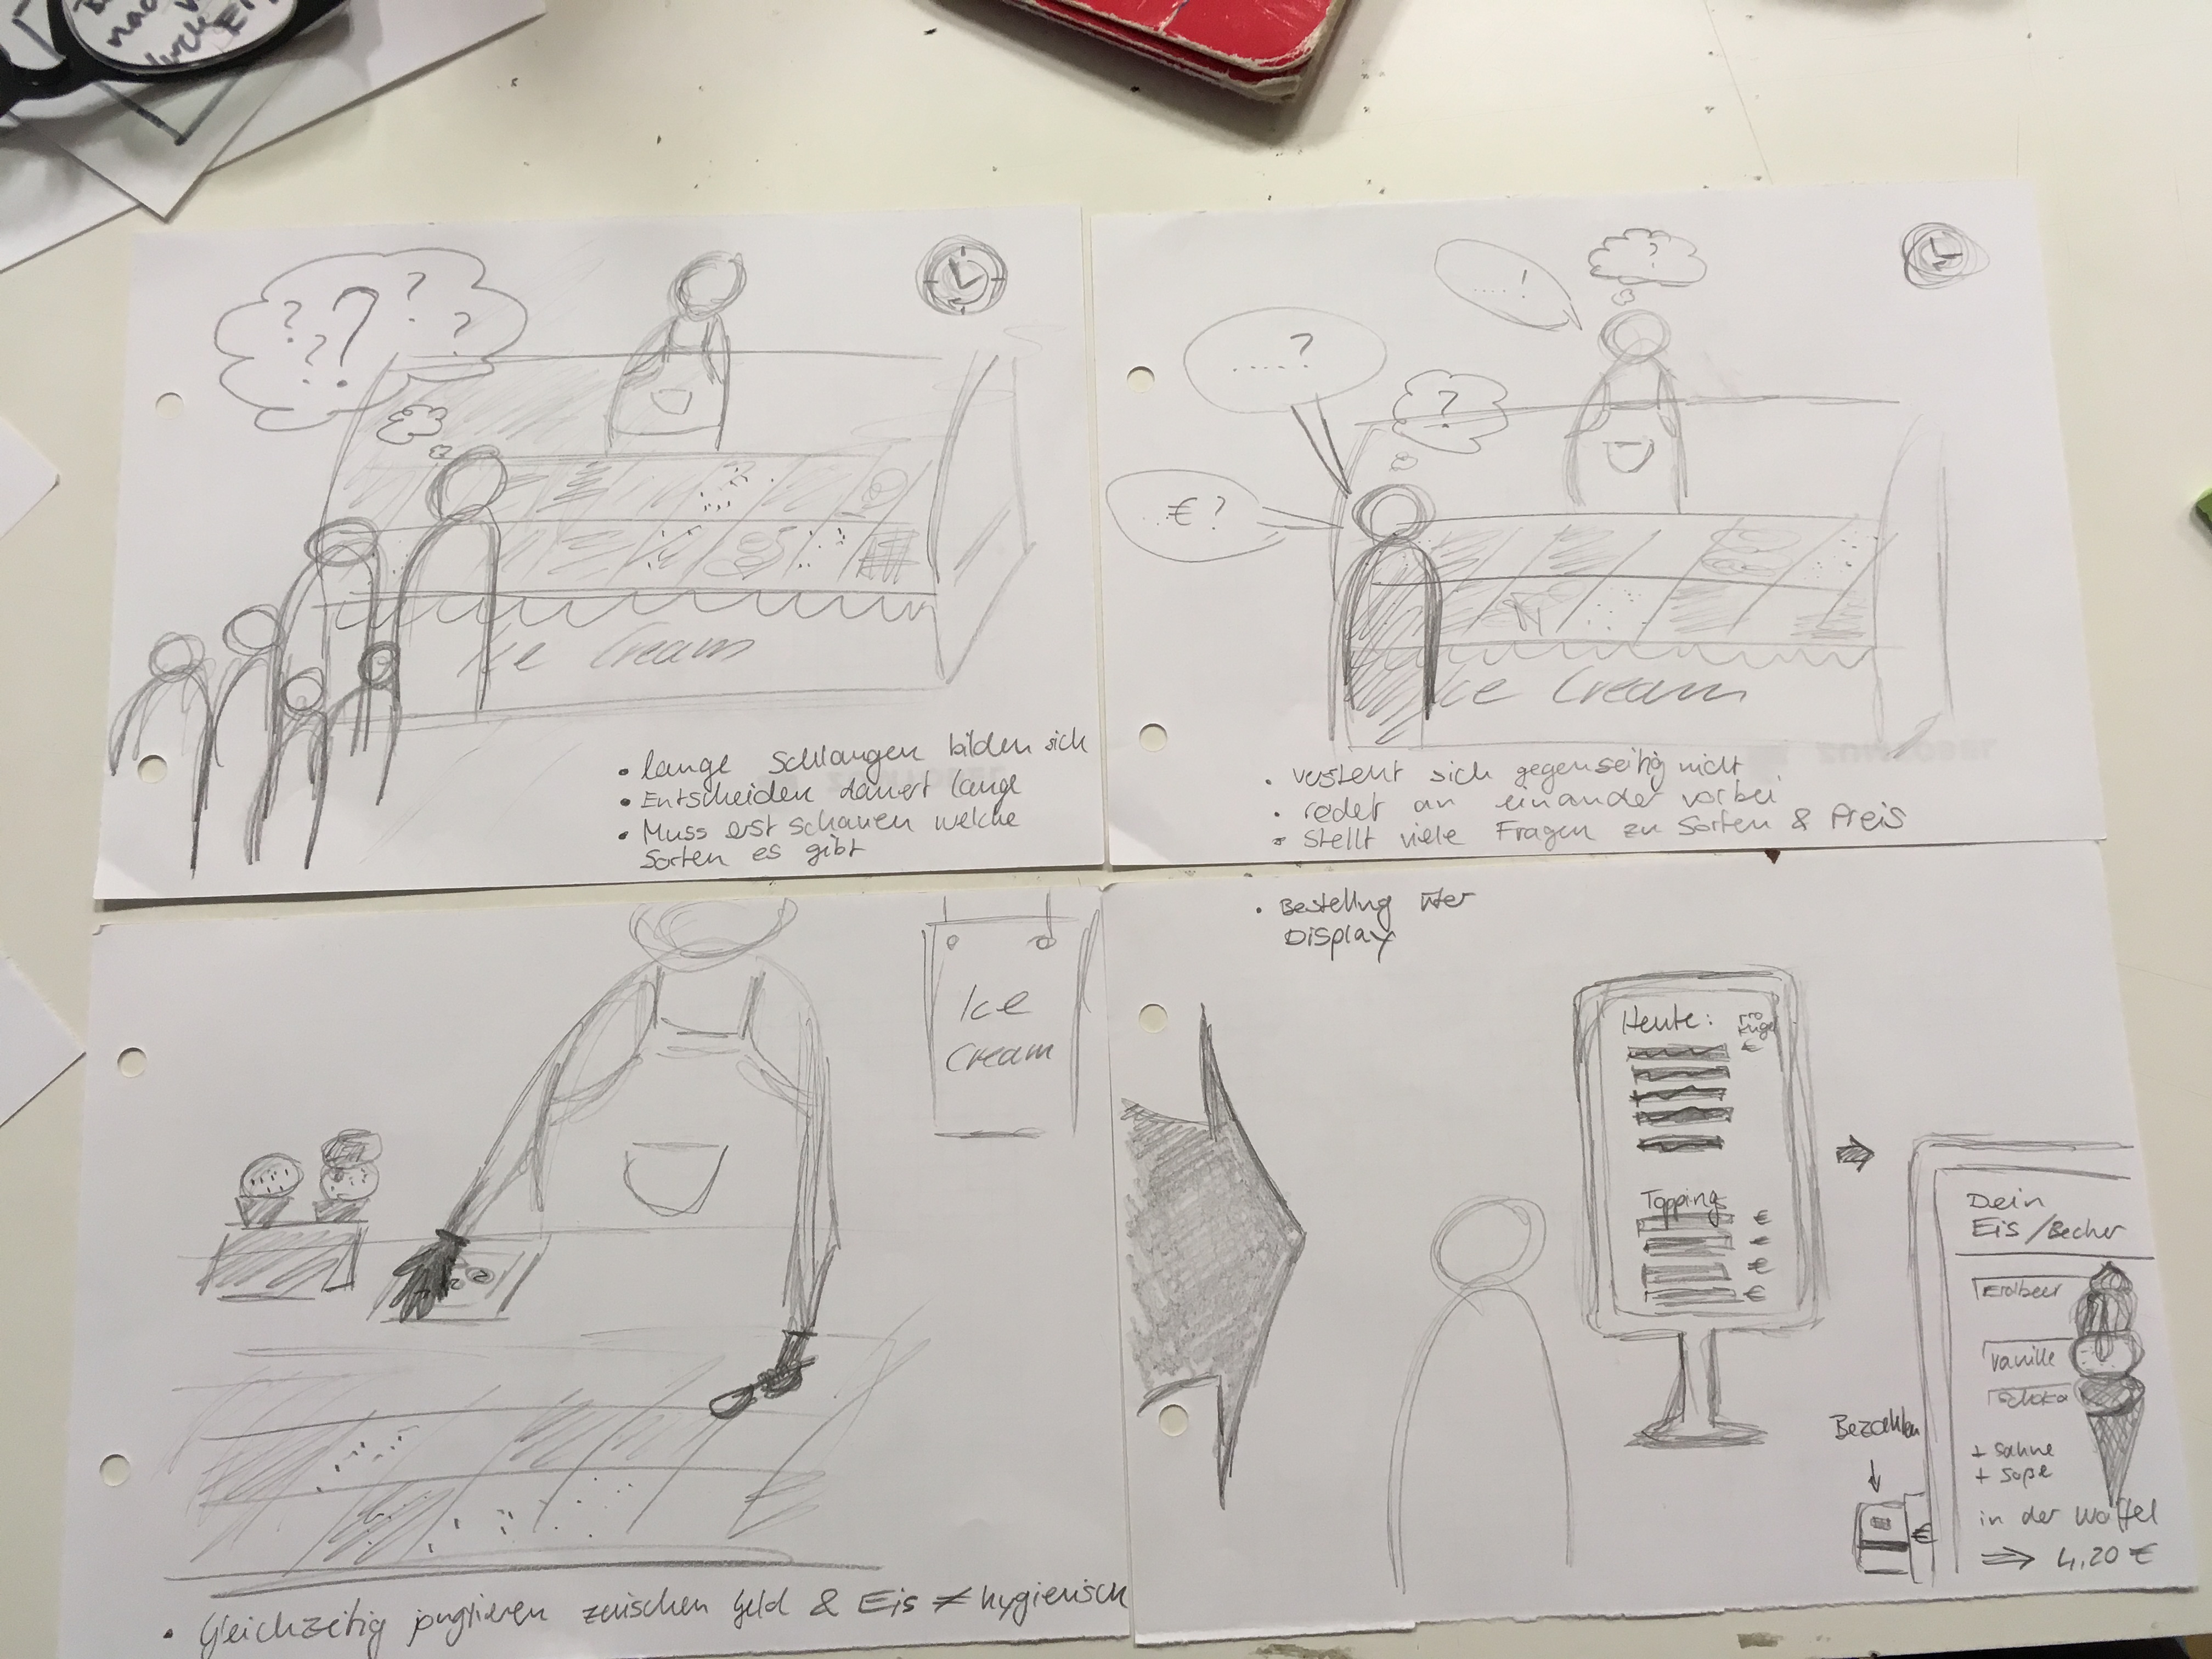 ? ? ? ? ?
Ice Cream
• lange Schlangen bilden sich
• Entscheiden dauert lange
• Muss erst schauen welche
Sorten es gibt
.....!
?
.....?
?
..€?
Ice Cream
• versteht sich gegenseitig nicht
• redet an einander vorbei
• stellt viele Fragen zu Sorten & Preis
Ice
Cream
• Gleichzeitig jonglieren zwischen Geld & Eis ≠ hygienisch
• Bestellung über
Display
Heute:
€
Topping
€
€
€
€
Dein
Eis/Becher
Erdbeer
Vanille
Schoko
+ Sahne
+ Soße
in der Waffel
⇒ 4,20 €
Bezahlen
€